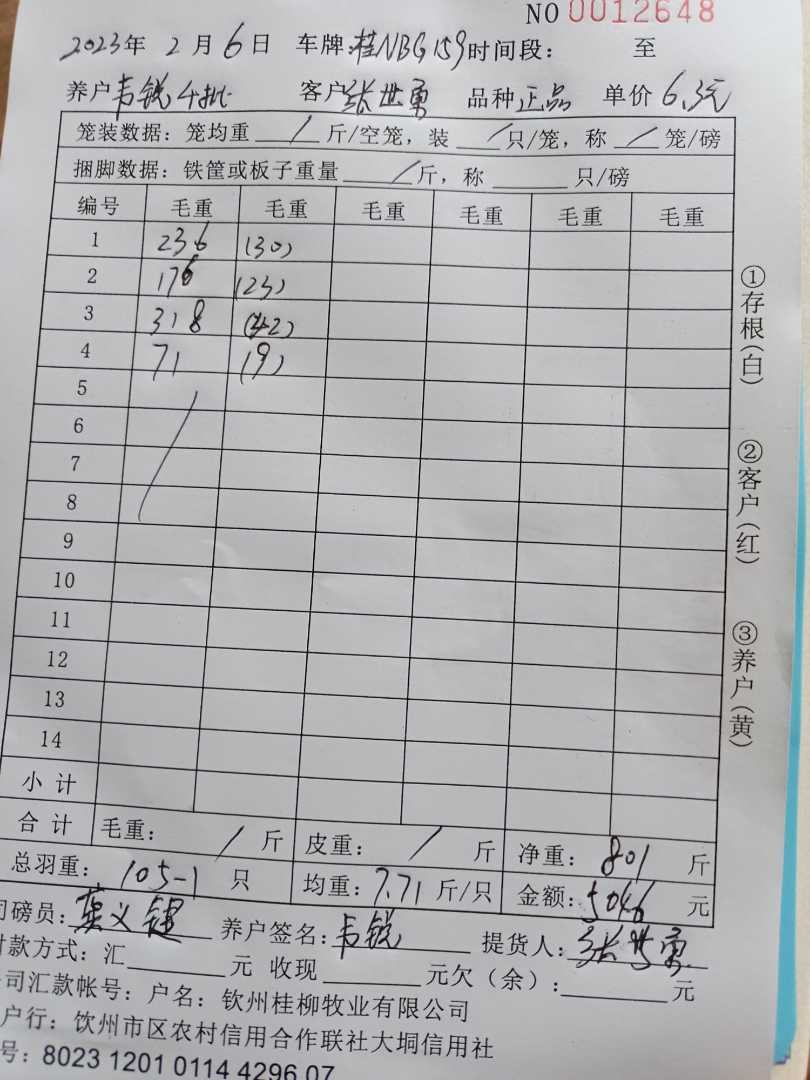 NO 0012648
2023年 2月 6日 车牌:桂NBG159 时间段: 至
养户 韦锐4批 客户 张世勇 品种 正品 单价 6.3元
笼装数据: 笼均重 / 斤/空笼, 装 / 只/笼, 称 / 笼/磅
捆脚数据: 铁筐或板子重量 / 斤, 称 只/磅
编号 毛重 毛重 毛重 毛重 毛重 毛重
1 236 (30)
2 176 (23)
3 318 (42)
4 71 (9)
5
6
7
8
9
10
11
12
13
14
小计
合计 毛重: / 斤 皮重: / 斤 净重: 801 斤
总羽重: 105-1 只 均重: 7.71 斤/只 金额: 5046 元
司磅员: 龚义键 养户签名: 韦锐 提货人: 张世勇
付款方式: 汇 元 收现 元欠(余): 元
司汇款帐号: 户名: 钦州桂柳牧业有限公司
户行: 饮州市区农村信用合作联社大垌信用社
号: 8023 1201 0114 4296 07
①存根(白)
②客户(红)
③养户(黄)